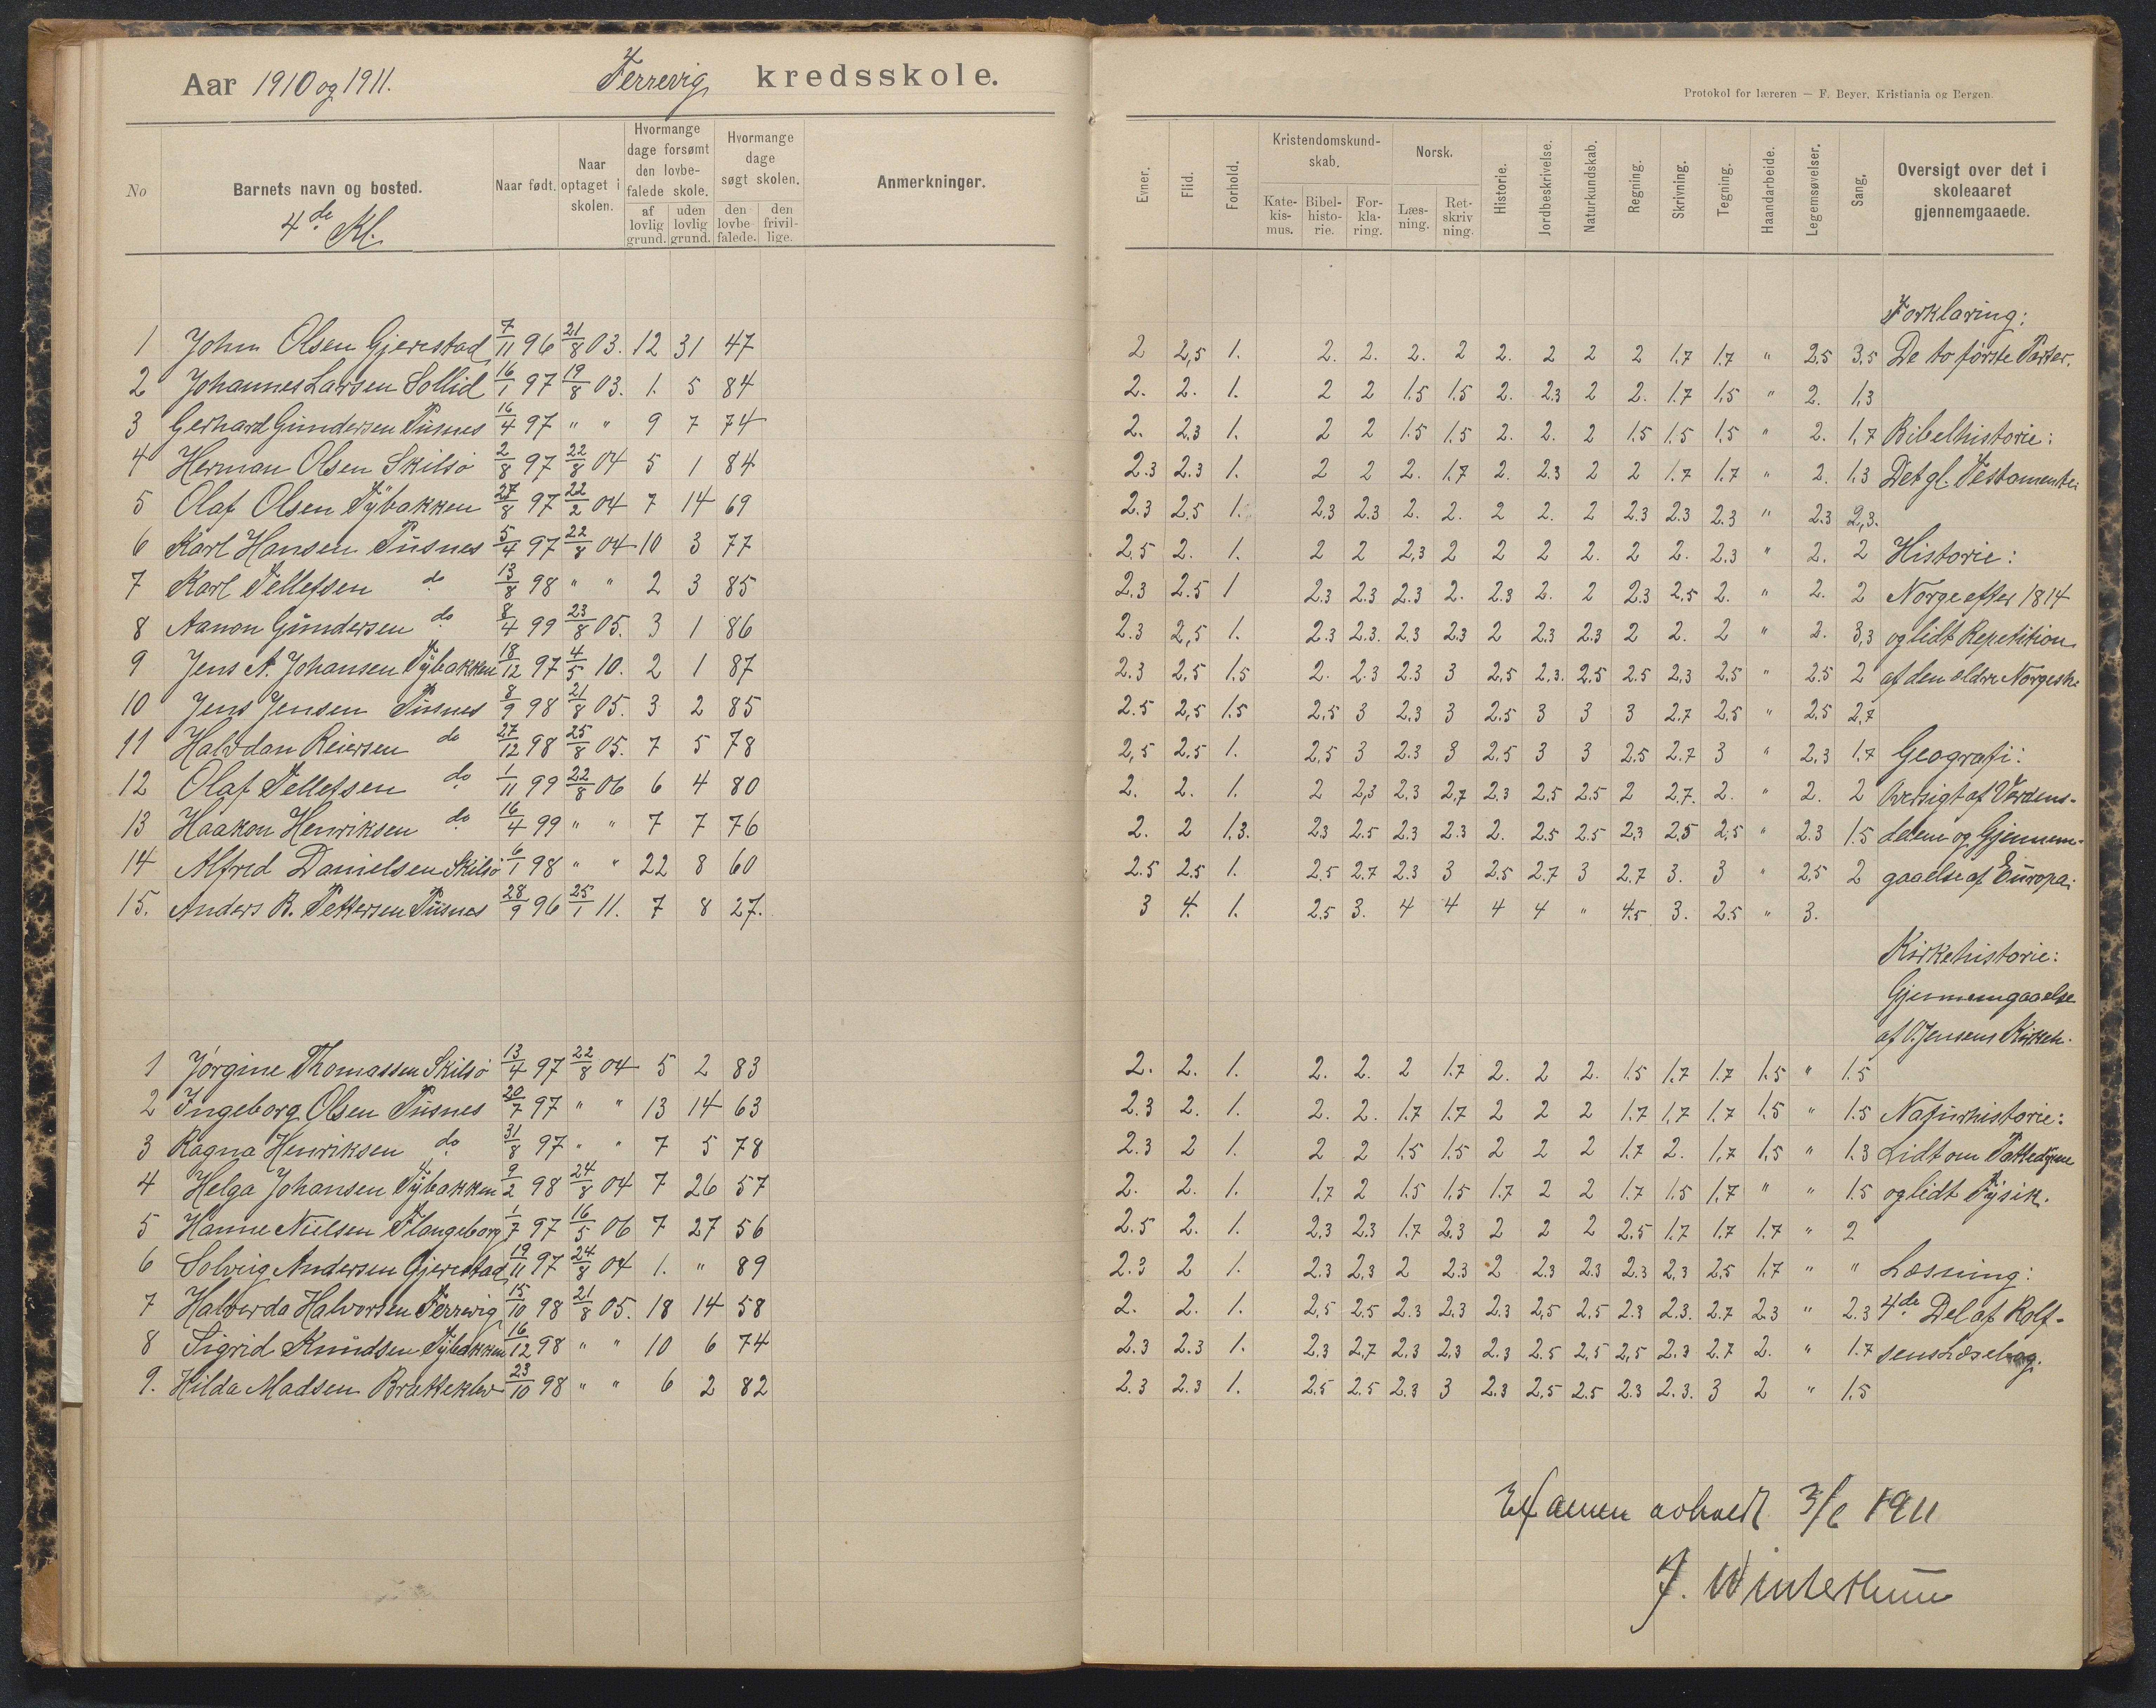 Aar 1910 og 1911. Ferrevig kredsskole.
Protokol for læreren — F. Beyer, Kristiania og Bergen.
No
Barnets navn og bosted.
4de Kl.
Naar født.
Naar optaget i skolen.
Hvormange dage forsømt den lovbefalede skole.
af lovlig grund.
uden lovlig grund.
Hvormange dage søgt skolen.
den lovbefalede.
den frivillige.
Anmerkninger.
Evner.
Flid.
Forhold.
Kristendomskundskab.
Katekismus.
Bibelhistorie.
Forklaring.
Norsk.
Læsning.
Retskrivning.
Historie.
Jordbeskrivelse.
Naturkundskab.
Regning.
Skrivning.
Tegning.
Haandarbeide.
Legemsøvelser.
Sang.
Oversigt over det i skoleaaret gjennemgaaede.
Forklaring:
1 John Olsen Gjerestad 7/11 96 21/8 03. 12 31 47 2 2,5 1. 2. 2. 2. 2 2. 2 2 2 1.7 1.7 " 2.5 3.5 De to første Parter.
2 Johannes Larsen Sollid 16/1 97 19/8 03. 1. 5 84 2. 2. 1. 2 2 1.5 1.5 2. 2.3 2 2. 1.7 1,5 " 2. 1,3
3 Gerhard Gundersen Pusnes 16/4 97 " " 9 7 74 2. 2,3 1. 2 2 1.5 1.5 2. 2. 2 1.5 1.5 1.5 " 2. 1,7 Bibelhistorie:
4 Herman Olsen Skilsø 2/8 97 22/8 04 5 1 84 2.3 2.3 1. 2 2 2. 1.7 2. 2.3 2 2 1.7 1.7 " 2. 1.3 Det gl. Testamente.
5 Olaf Olsen Tybakken 27/8 97 22/2 04 7 14 69 2.3 2.5 1. 2.3 2.3 2. 2. 2 2. 2 2.3 2.3 2.3 " 2.3 2,3.
6 Karl Hansen Pusnes 5/4 97 22/8 04 10 3 77 2.5 2. 1. 2 2 2,3 2 2 2 2. 2 2. 2.3 " 2. 2 Historie:
7 Karl Tellefsen do 13/8 98 " " 2 3 85 2,3 2.5 1 2.3 2.3 2.3 2. 2.3 2. 2 2.3 2.5 2. " 2. 2 Norge efter 1814
8 Aanon Gundersen do 8/4 99 23/8 05. 3 1 86 2.3 2,5 1. 2.3 2.3. 2.3 2.3 2 2.3 2.3 2 2. 2 " 2. 3,3 og lidt Repetition
9 Jens A. Johansen Tybakken 18/12 97 4/5 10. 2 1 87 2.3 2,5 1.5 2. 2.3 2.3 3 2,5 2,3. 2.5 2.5 2,3 2,5 " 2.5 2 af den ældre Norgesh.
10 Jens Jensen Pusnes 8/9 98 21/8 05. 3 2 85 2.5 2,5 1.5 2,5 3 2,3 3 2.5 3 3 3 2.7 2,5 " 2,5 2,7
11 Halvdan Reiersen do 27/12 98 25/8 05. 7 5 78 2,5 2.5 1. 2,5 3 2.3 3 2,5 3 3 2.5 2.7 3 " 2,3 1.7 Geografi:
12 Olaf Tellefsen do 1/11 99 22/8 06 6 4 80 2. 2. 1. 2 2,3 2.3 2,7 2,3 2,5 2.5 2 2.7. 2. " 2. 2 Oversigt af Verdens-
13 Haakon Henriksen do 16/4 99 " " 7 7 76 2. 2 1.3. 2.3 2.5 2.3 2.3 2. 2.5 2.5 2,3 2,5 2,5 " 2.3 1.5 delene og Gjennem-
14 Alfred Danielsen Skilsø 6/1 98 " " 22 8 60 2.5 2.5 1. 2.5 2.7 2.3 3 2.5 2.7 3 2.7 3. 3 " 2,5 2 gaaelse af Europa.
15. Anders B. Pettersen Pusnes 28/9 96 25/1 11. 7 8 27. 3 4. 1. 2.5 3. 4 4 4 4 " 4.5 3. 2.5 " 3.
Kirkehistorie:
Gjennemgaaelse
af O. Jensens Kirkeh.
1 Jørgine Thomassen Skilsø 13/4 97 22/8 04 5 2 83 2. 2. 1. 2. 2. 2 1.7 2. 2 2. 1.5 1.7 1.7 1.5 " 1.5
2 Ingeborg Olsen Pusnes 20/7 97 " " 13 14 63 2.3 2. 1. 2. 2. 1.7 1.7 2 2 2 1.7 1,7 1.7 1.5 " 1.5 Naturhistorie:
3 Ragna Henriksen do 31/8 97 " " 7 5 78 2.3 2 1. 2 2 1.5 1.5 2 2 2 1.7 2. 1,7 1.5 " 1.3 Lidt om Pattedyrene
4 Helga Johansen Tybakken 9/2 98 24/8 04 7 26 57 2. 2. 1. 1,7 2 1.5 1,5 1.7 2 2 1.7 1.5 1,7 " " 1.5 og lidt Fysik.
5 Hanne Nielsen Flangeborg 1/7 97 16/5 06 7 27 56 2.5 2. 1. 2,3 2.3 1.7 2.3 2 2 2 2.5 1.7 1.7 1.7 " 2
6 Solveig Andersen Gjerestad 19/11 97 24/8 04 1. " 89 2.3 2 1. 2.3 2,3 2 2.3 2 2.3 2.3 2.3 2,3 2,5 1.7 " " Læsning:
7 Halverda Halvorsen Ferrevig 15/10 98 21/8 05. 18 14 58 2. 2. 1. 2,5 2.5 2.3 2,3 2.3 2,5 2,5 2.3 2.3. 2.7 2.3 " 2.3 4de Del af Rolf-
8 Sigrid Knudsen Tybakken 16/12 98 " " 10 6 74 2.3 2.3 1. 2,3 2,7 2.3 2,3 2.3 2.5 2,5 2,5 2.3 2.7 2. " 1.7 sens Læsebog.
9. Hilda Madsen Bratteklev 23/10 98 " " 6 2 82 2.3 2.3 1. 2.5 2.5 2.3 3 2.3 2,5 2.5 2.3 2.3. 3 2 " 1,5
Examen avholdt 3/6 1911
J. Winterthun